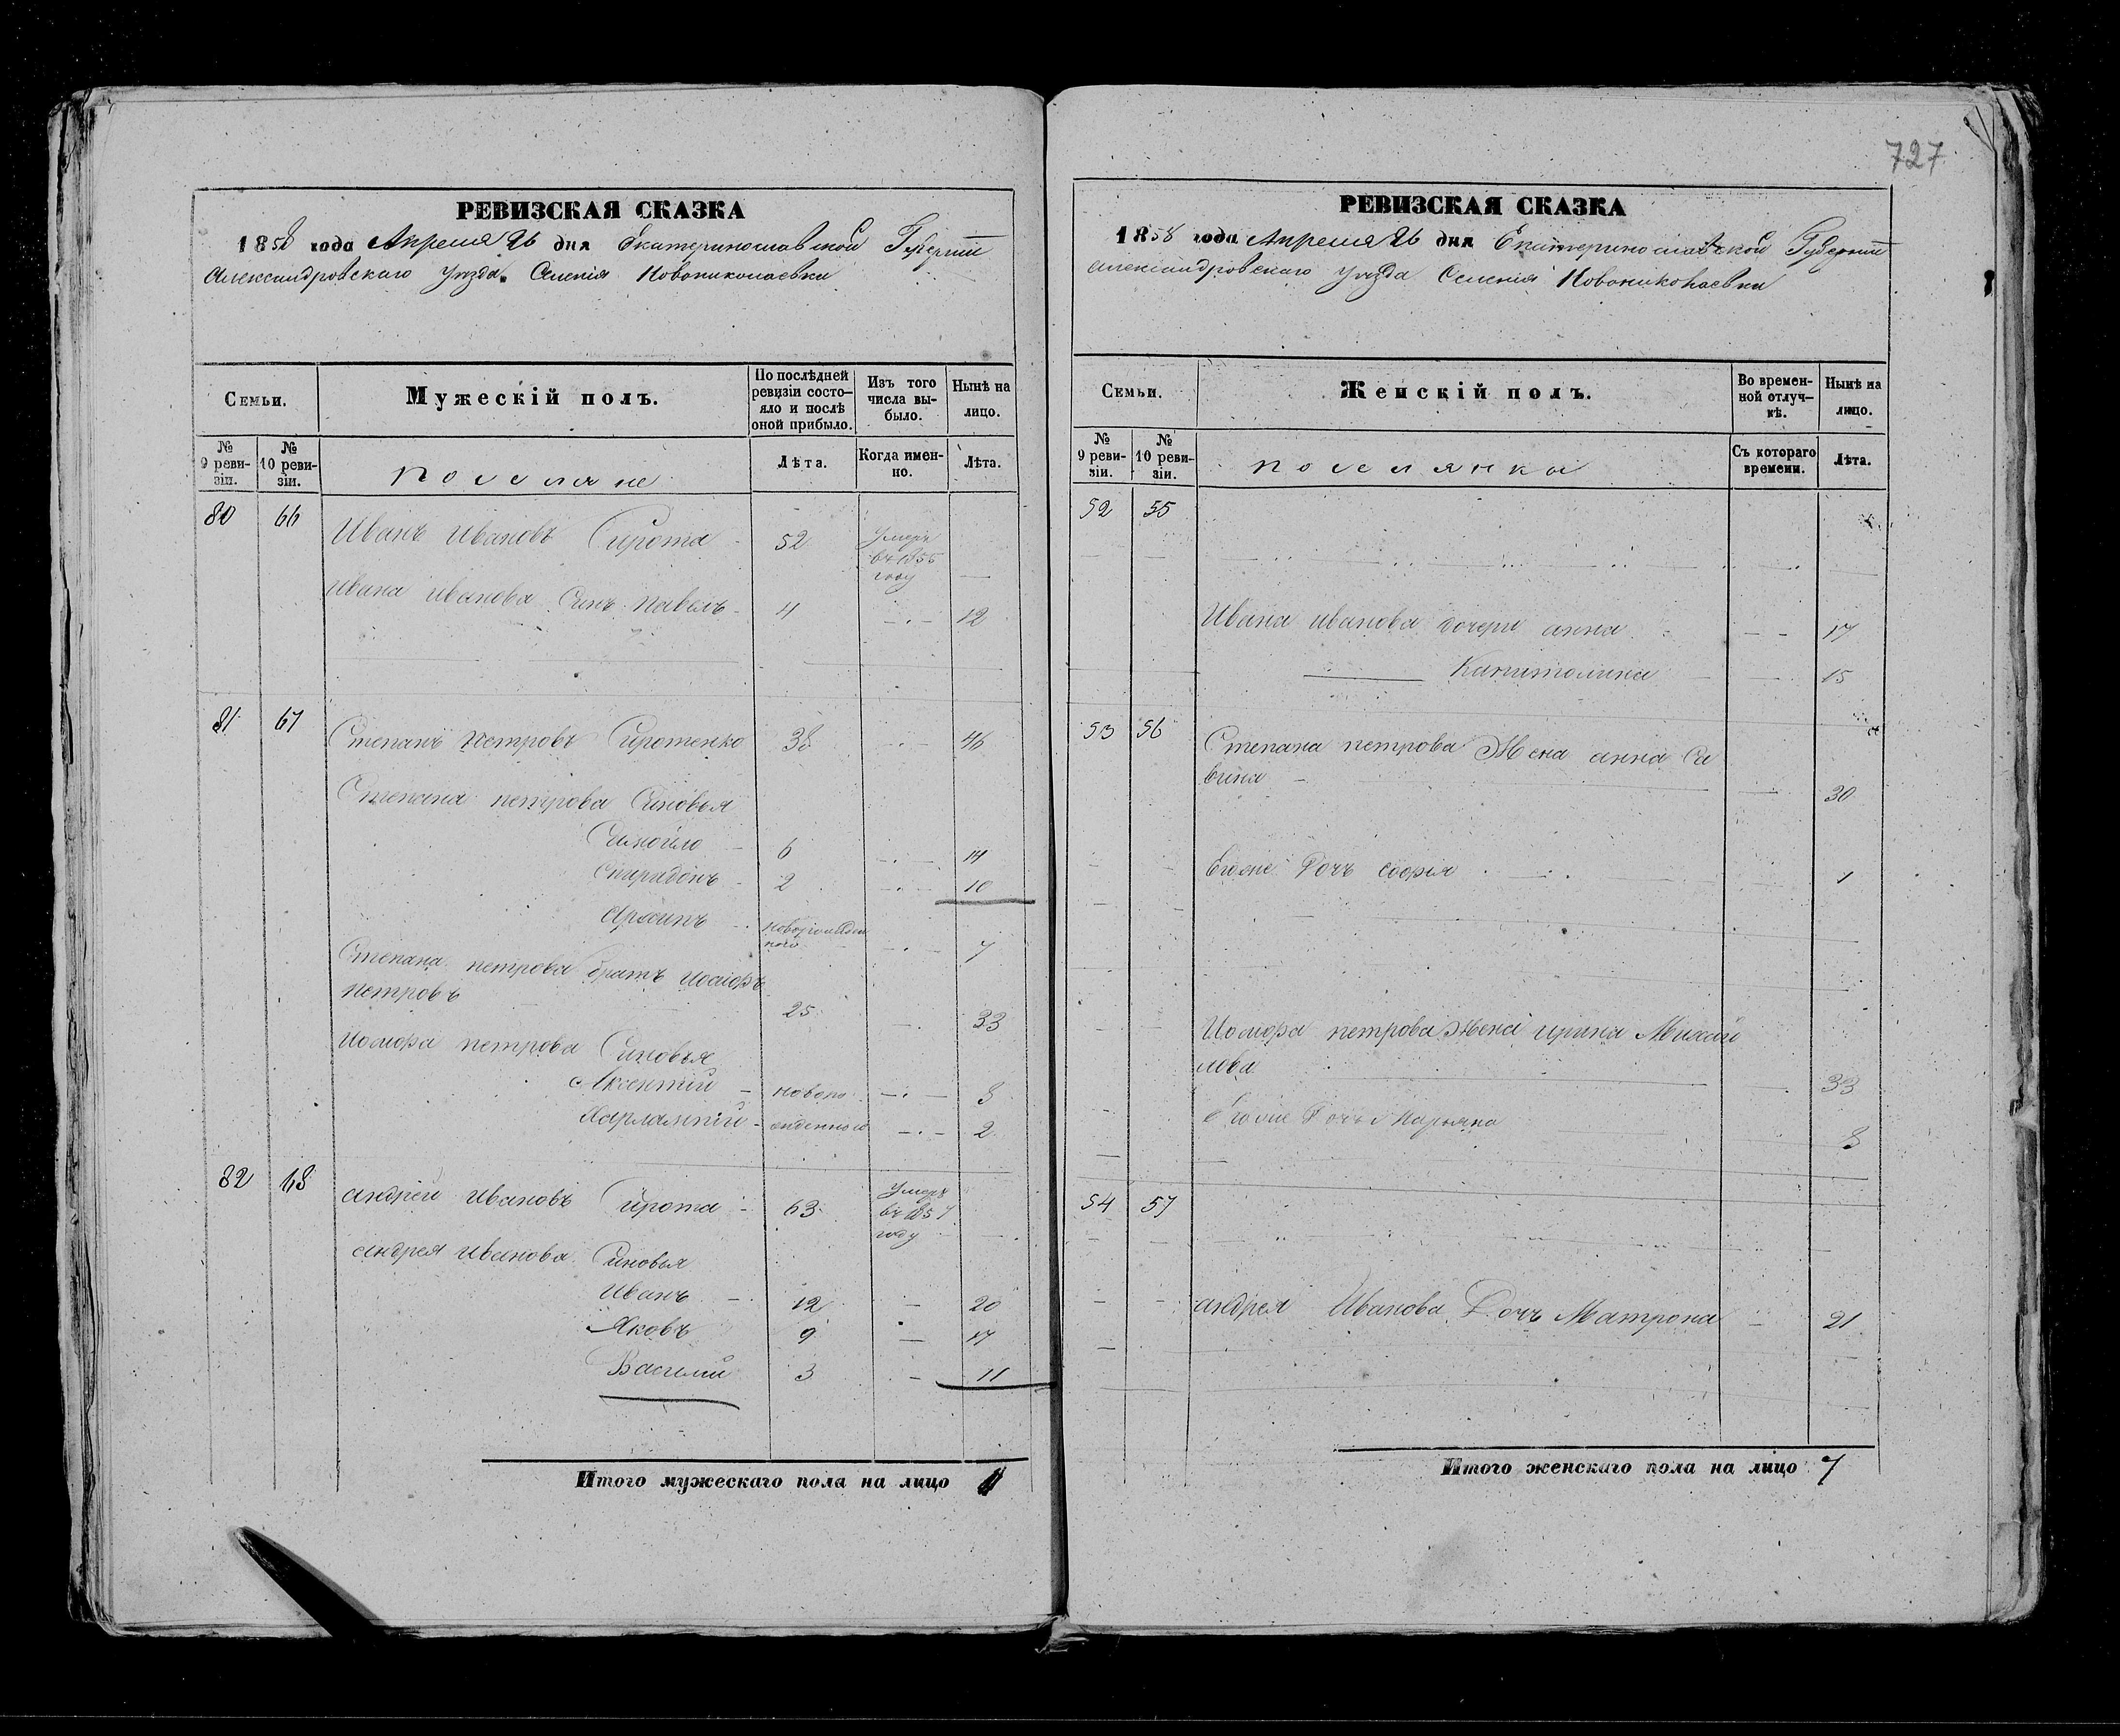 727
РЕВИЗСКАЯ СКАЗКА
1858 года Апреля 26 дня Екатеринославской Губерніи
Александровскаго уезда Селенія Новониколаевки
Семьи.
Мужескій полъ.
По послѣдней ревизіи состо-яло и послѣ оной прибыло.
Изъ того числа вы-было.
Нынѣ на лицо.
№ 9 реви-зіи.
№ 10 реви-зіи.
поселяне
Лѣта.
Когда имен-но.
Лѣта.
80 66
Иванъ Ивановъ Сирота 52 Умеръ въ 1855 году
Ивана Иванова Сынъ Павелъ 4 12
81 67
Степанъ Петровъ Сиротенко 38 46
Степана петрова Сыновья
Самойло 6 14
Спиридонъ 2 10
Архипъ новорожден наго 7
Степана петрова братъ Иосифъ
петровъ 25 33
Иосифа петрова Сыновья
Аксентій новоро 8
Харлампій жденнаго 2
82 68
андрей Ивановъ Сирота 63 Умеръ въ 1857 году
андрея Иванова Сыновья
Иванъ 12 20
Яковъ 9 17
Василий 3 11
Итого мужескаго пола на лицо 11
РЕВИЗСКАЯ СКАЗКА
1858 года Апреля 26 дня Екатеринославской Губерніи
александровскаго уезда Селенія Новониколаевки
Семьи.
Женскій полъ.
Во времен-ной отлуч-кѣ.
Нынѣ на лицо.
№ 9 реви-зіи.
№ 10 реви-зіи.
поселянки
Съ котораго времени.
Лѣта.
52 55
Ивана иванова дочери анна 17
Капитолина 15
53 56
Степана петрова Жена анна Са
вина 30
Егоже Дочь софия 1
Иосифа петрова Жена ирина Михай
лова 33
Егоже Дочь Марьяна 8
54 57
андрея Иванова Дочь Матрона 21
Итого женскаго пола на лицо 7